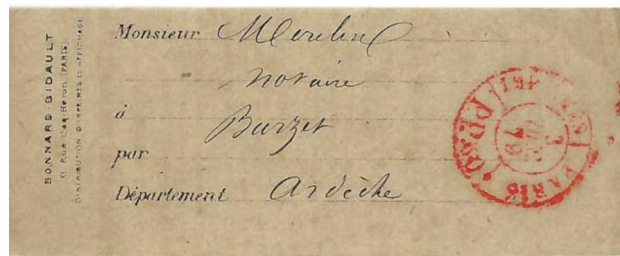 BONNARD-BIDAULT
6, Rue Coq Héron (PARIS)
DISTRIBUTION D'IMPRIMÉS ET AFFICHAGE
Monsieur Moulin
notaire
à Burzet
par
Département Ardèche
PARIS
PP